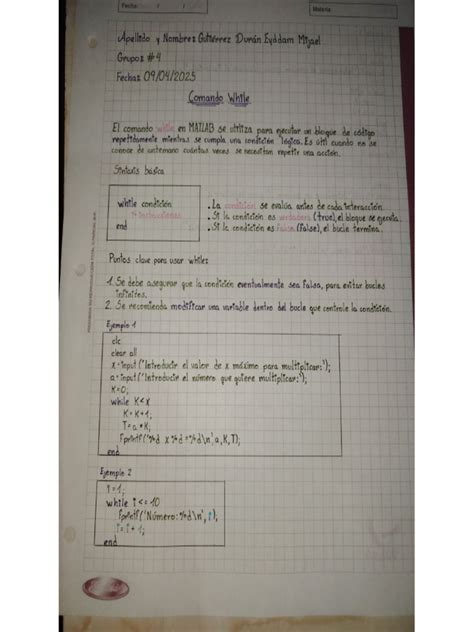 Fecha: / /
Materia:
Apellido y Nombre: Gutiérrez Durán Eyddam Mijael
Grupo: #4
Fecha: 09/04/2025
Comando While
El comando while en MATLAB se utiliza para ejecutar un bloque de código
repetidamente mientras se cumpla una condición lógica. Es útil cuando no se
conoce de antemano cuántas veces se necesitan repetir una acción.
Sintaxis básica
while condición
% instrucciones
end
. La condición se evalúa antes de cada interacción.
. Si la condición es verdadera (true), el bloque se ejecuta.
. Si la condición es falsa (false), el bucle termina.
Puntos clave para usar while:
1. Se debe asegurar que la condición eventualmente sea falsa, para evitar bucles
infinitos.
2. Se recomienda modificar una variable dentro del bucle que controle la condición.
Ejemplo 1
clc
clear all
x=input('Introducir el valor de x máximo para multiplicar:');
a=input('Introducir el número que quiere multiplicar:');
K=0;
while K<x
K=K+1;
T=a*K;
fprintf('%d x %d =%d\n',a,K,T);
end
Ejemplo 2
i=1;
while i<=10
fprintf('Número:%d\n', i);
i=i+1;
end